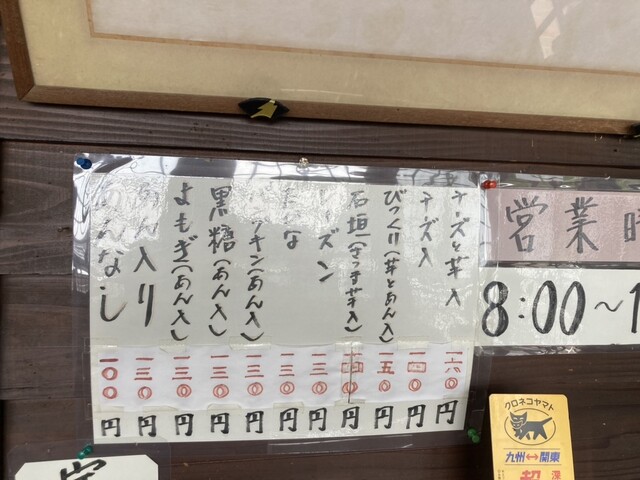 チーズと芋入 一六〇円
チーズ入 一四〇円
びっくり(芋とあん入) 一五〇円
石垣(さつま芋入) 一四〇円
レーズン 一三〇円
たかな 一三〇円
(あん入) 一三〇円
黒糖(あん入) 一三〇円
よもぎ(あん入) 一三〇円
あん入り 一三〇円
あんなし 一〇〇円
営業時
8:00～1
クロネコヤマト
九州↔関東
超